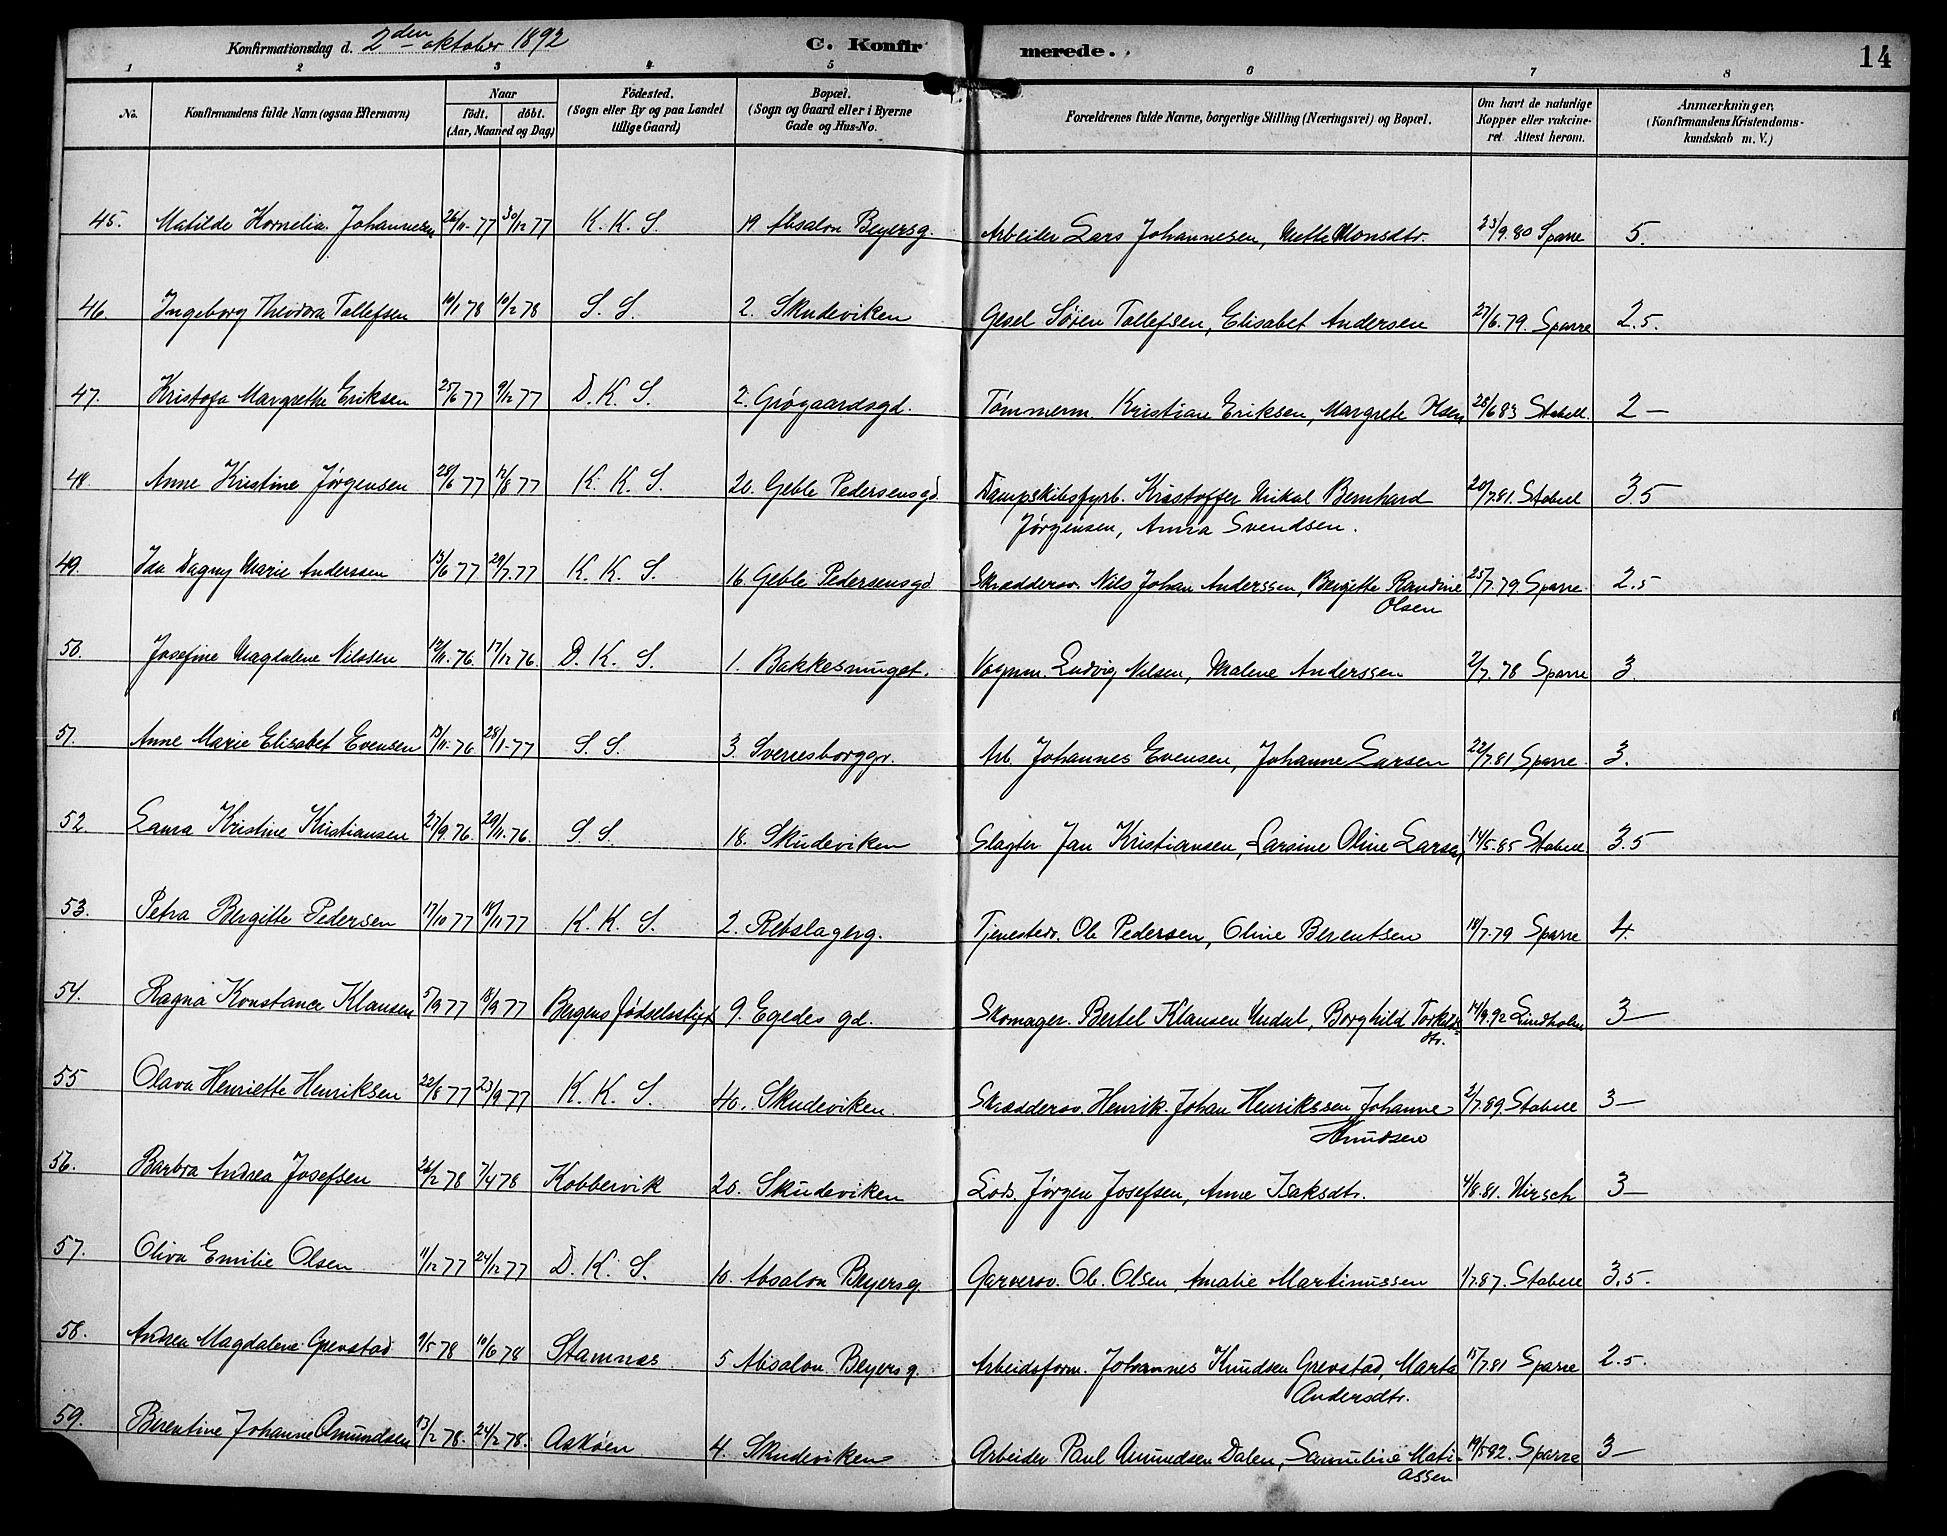 Konfirmationsdag d. 2den oktober 1892 C. Konfirmerede. 14
1 2 3 4 5 6 7 8
No. Konfirmandens fulde Navn (ogsaa Efternavn) Naar födt. döbt. (Aar, Maaned og Dag) Födested. (Sogn eller By og paa Landet tillige Gaard) Bopæl. (Sogn og Gaard eller i Byerne Gade og Hus-No. Forældrenes fulde Navne, borgerlige Stilling (Næringsvei) og Bopæl. Om havt de naturlige Kopper eller vakcineret. Attest herom. Anmærkninger. (Konfirmandens Kristendomskundskab m. V.)
45. Matilde Kornelia Johannesen 26/11-77 30/12 77 K. K. S. 19. Absalon Beyersg. Arbeider Lars Johannesen, Mette Monsdtr. 23/9.80 Sparre 5.
46. Ingeborg Theodora Tollefsen 10/1 78 10/2 78 S. S. 2. Skudeviken Gesel Søren Tollefsen, Elisabet Andersen 27/6.79. Sparre 2.5.
47. Kristofa Margrethe Eriksen 25/6 77 9/12 77 D. K. S. 2. Grøgaardsgd. Tømmerm. Kristian Eriksen, Margrete Olsen 28/6 83 Stabell. 2 —
48. Anne Kristine Jørgensen 28/6 77 12/8 77 K. K. S. 20. Geble Pedersensgd Dampskibsfyrb. Kristoffer Mikal Bernhard 20/7.81. Stabell 3.5
Jørgensen, Anna Svendsen.
49. Ida Dagny Marie Anderssen 13/6 77 29/7.77 K. K. S. 16. Geble Pedersensgd Skræddersv. Nils Johan Anderssen, Bergitte Randine 25/7.79. Sparre. 2.5
Olsen
50. Josefine Magdalene Nilssen 12/11.76. 17/12 76. D. K. S. 1. Bakkesmuget. Vognm. Ludvig Nilsen, Malene Anderssen 2/7.78 Sparre 3.
51. Anne Marie Elisabet Evensen 13/11-76. 28/1-77 S. S. 3. Sverresborggr. Arb. Johannes Evensen, Johanne Larsen 22/7.81 Sparre. 3.
52. Laura Kristine Kristiansen 27/9.76. 29/11.76. S. S. 18. Skudeviken Slagter Jan Kristiansen, Larsine Oline Larsen, 14/5.85 Stabell. 3.5
53. Petra Bergitte Pedersen 17/10 77 18/11 77 K. K. S. 2. Rebslagerg. Tjenestedr. Ole Pedersen, Oline Berentsen 18/7.79 Sparre 4.
54. Ragna Konstance Klausen 5/9 77 18/9 77 Bergens fødselsstift 9. Egedes gd. Skomager. Bertel Klausen Undal, Borghild Torkilds- 14/9.92 Lindholm 3 —
dtr.
55 Olava Henriette Henriksen 22/8 77 23/9 77 K. K. S. 40. Skudeviken. Skrædderov. Henrik Johan Henrikssen Johanne 2/7.89. Stabell 3 —
Knudsen
56. Barbra Andrea Josefsen 26/2 78 7/4 78 Kobbervik 20. Skudeviken Lods. Jørgen Josefsen, Anne Isaksdtr. 4/8.81. Hirsch 3 —
57. Oliva Emilie Olsen 11/12 77 24/12 77 D. K. S. 10. Absalon Beyersg. Garversv. Ole Olsen, Amalie Martinussen 1/7.87. Stabell 3.5.
58. Andrea Magdalena Grevstad 9/5 78 10/6 78 Stamnæs 5 Absalon Beyersg. Arbeidsform. Johannes Knudsen Grevstad, Marta 15/7.81 Sparre 2.5.
Andersdtr.
59. Berentine Johanne Amundsen 13/2 78. 24/2 78. Askøen 4. Skudeviken Arbeider Paul Amundsen Dalen, Samuline Mati- 19/5 92. Sparre 3 —
assen